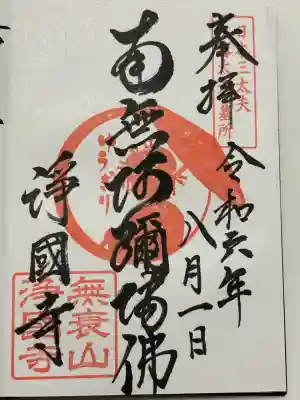 奉拝
令和六年
八月一日
南無阿彌陀佛
淨國寺
無衰山
浄国寺